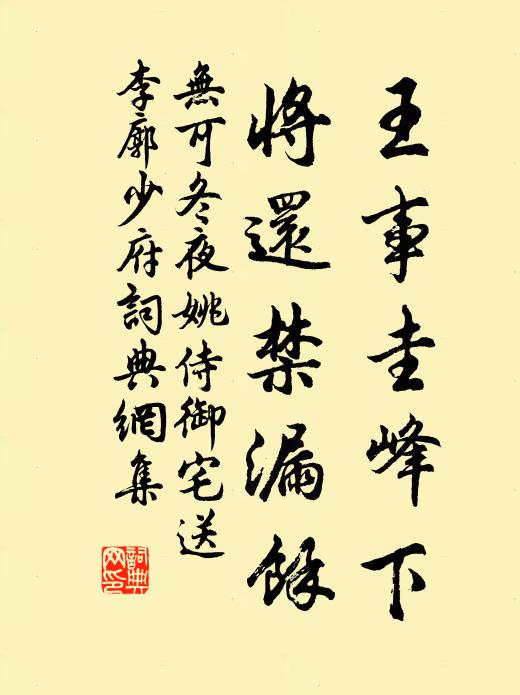 王事圭峰下
將還禁漏餘
無可冬夜姚侍御宅送
李廓少府詞典網集
詞典網印